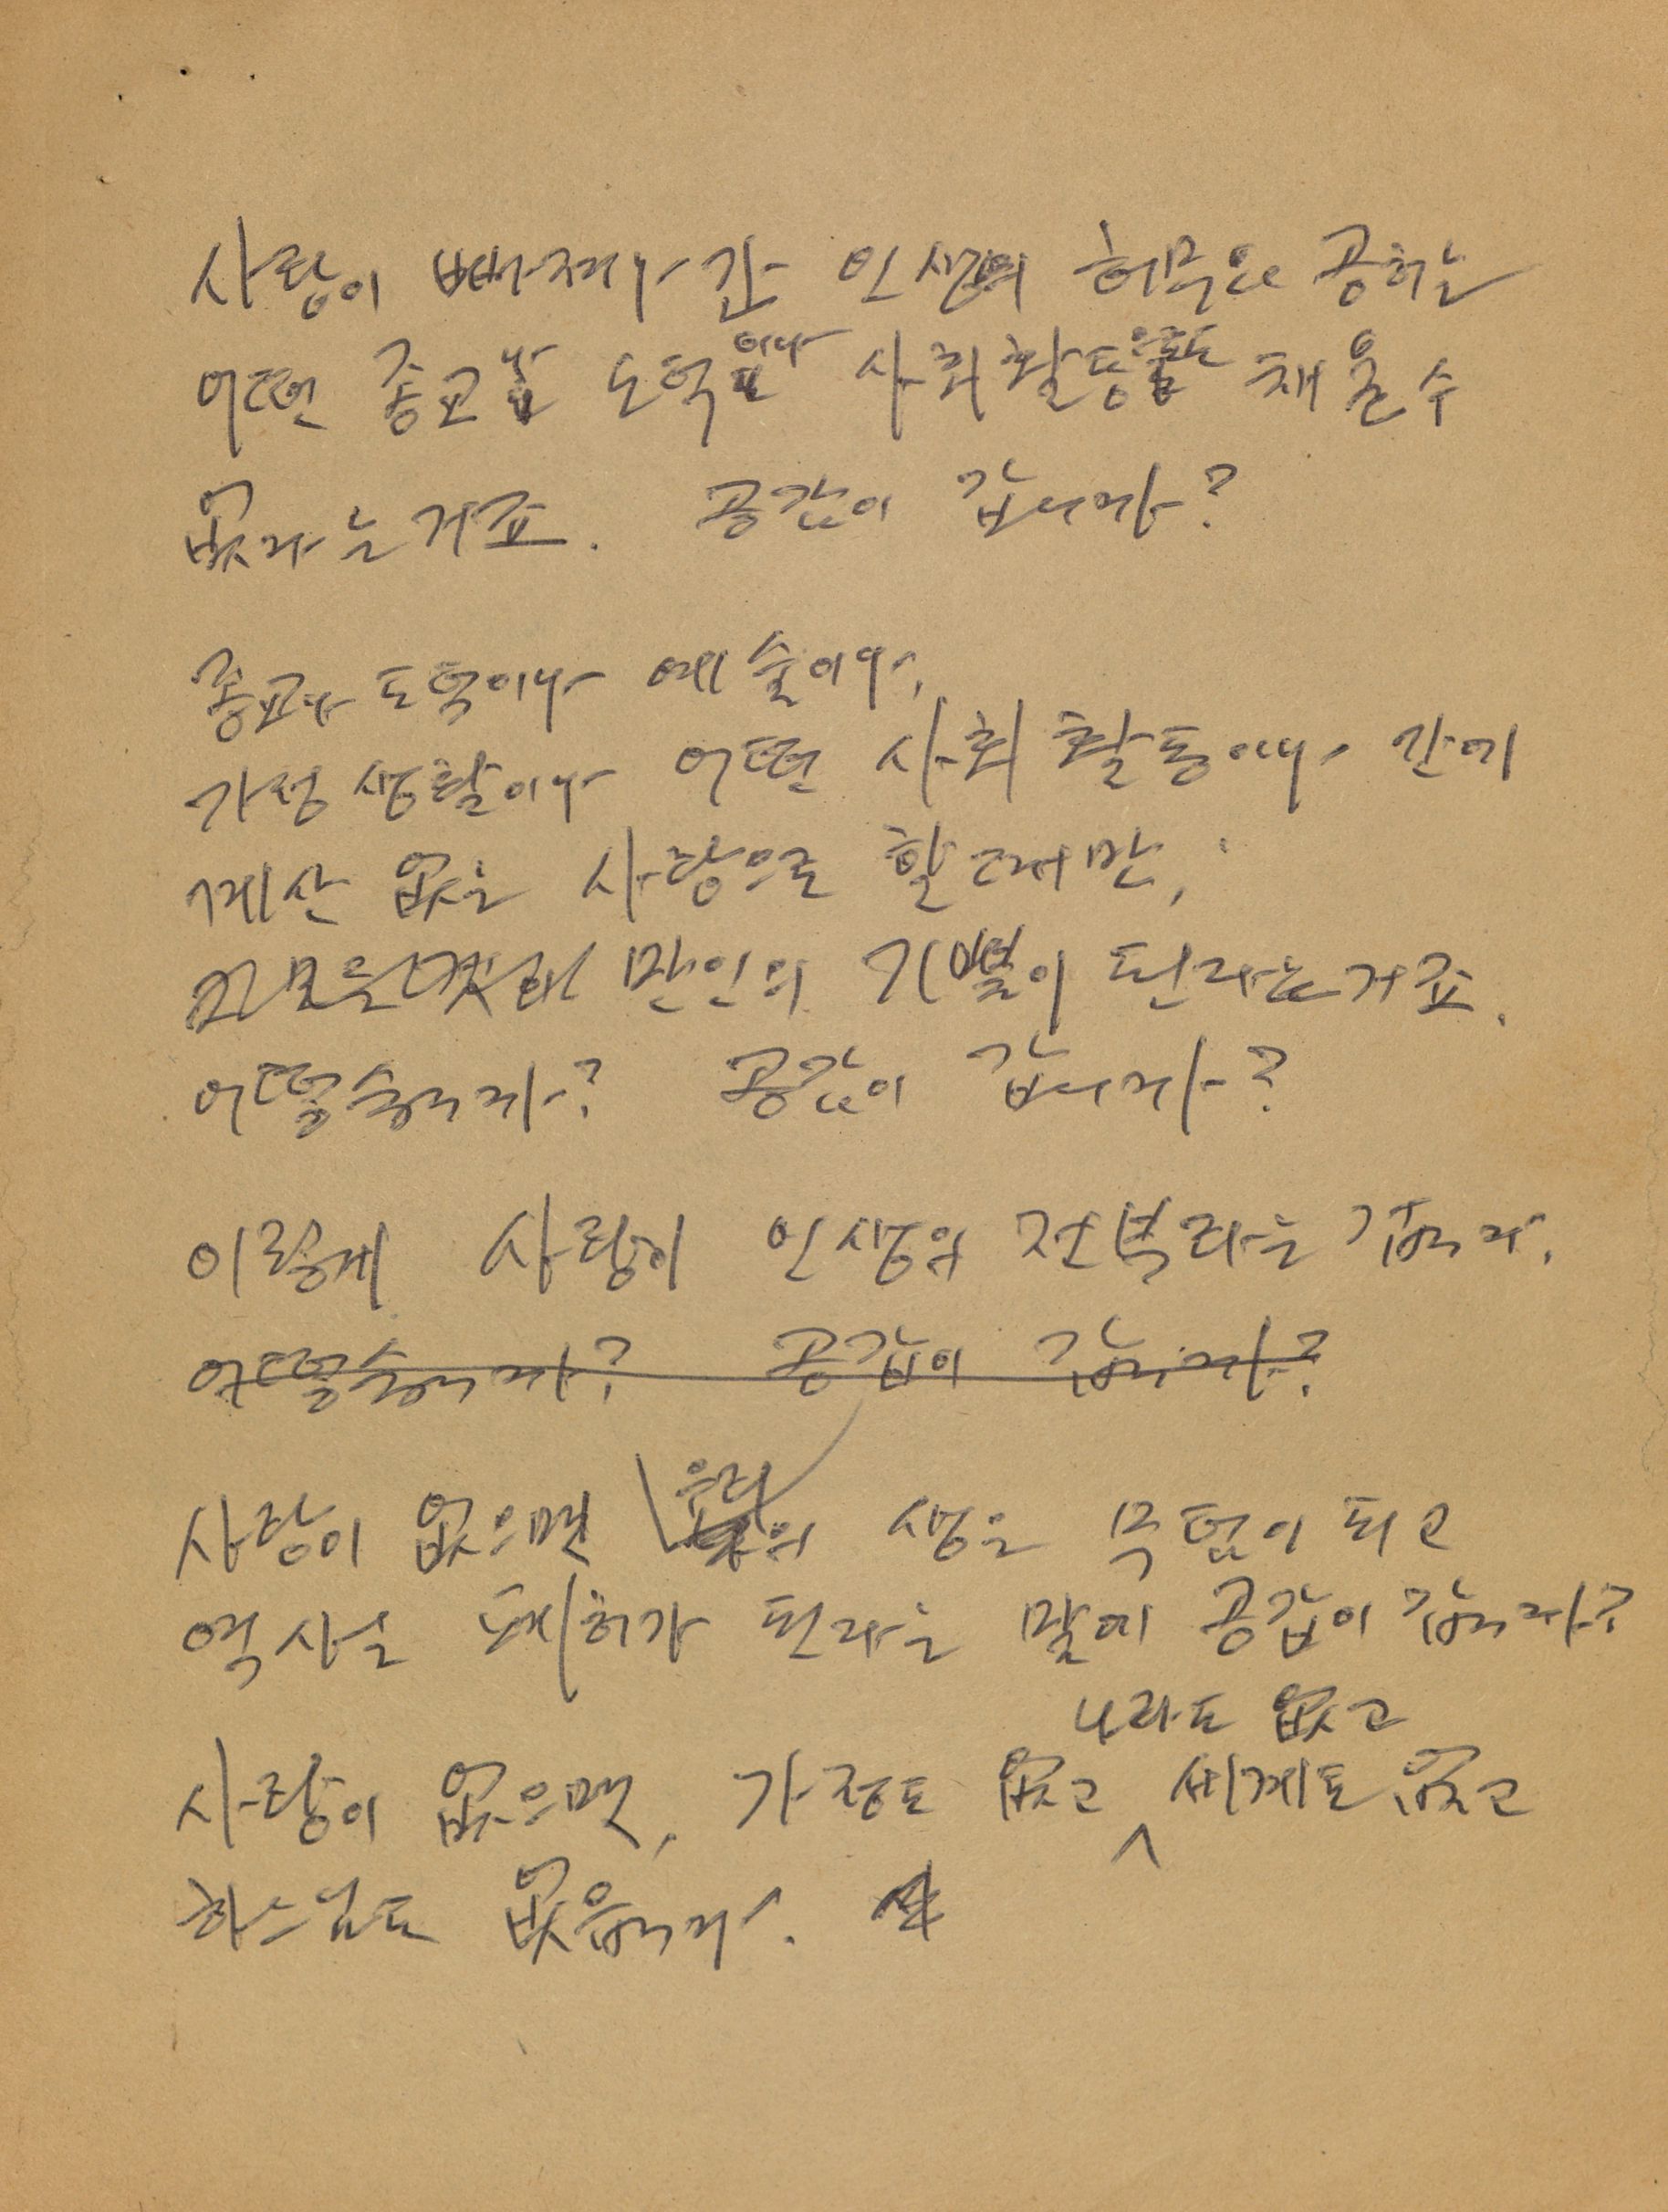 사랑이 빠져나간 인생의 허무와 공허는
어떤 종교나 도덕이나 사회활동으로도 채울 수
없다는거죠. 공감이 갑니까?
종교나 도덕이나 예술이나,
가정생활이나 어떤 사회활동이나 간에
계산 없는 사랑으로 할 때만,
만인의 기쁨이 된다는거죠.
어떻습니까? 공감이 갑니까?
이렇게 사랑이 인생의 전부라는 겁니다.
어떻습니까? 공감이 갑니까?
사랑이 없으면 우리의 생은 무덤이 되고
역사는 폐허가 된다는 말에 공감이 갑니까?
나라도 없고
사랑이 없으면, 가정도 없고 세계도 없고
하느님도 없읍니다.